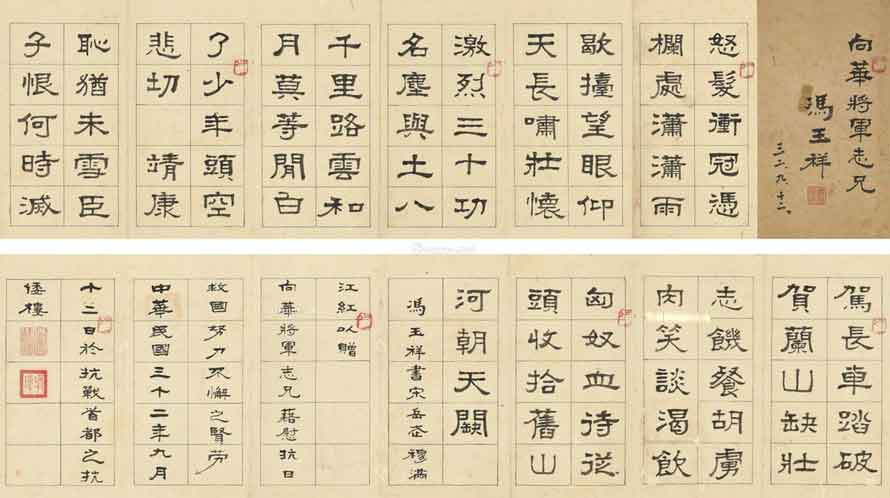 向華將軍志兄
馮玉祥
三二、九、十二、
怒髮衝冠憑
欄處瀟瀟雨
歇擡望眼仰
天長嘯壯懷
激烈三十功
名塵與土八
千里路雲和
月莫等閒白
了少年頭空
悲切 靖康
恥猶未雪臣
子恨何時滅
駕長車踏破
賀蘭山缺壯
志饑餐胡虜
肉笑談渴飲
匈奴血待從
頭收拾舊山
河朝天闕
馮玉祥書宋岳武穆滿
江紅以贈
向華將軍志兄藉慰抗日
救國努力不懈之賢勞
中華民國三十二年九月
十二日於抗戰首都之抗
倭樓